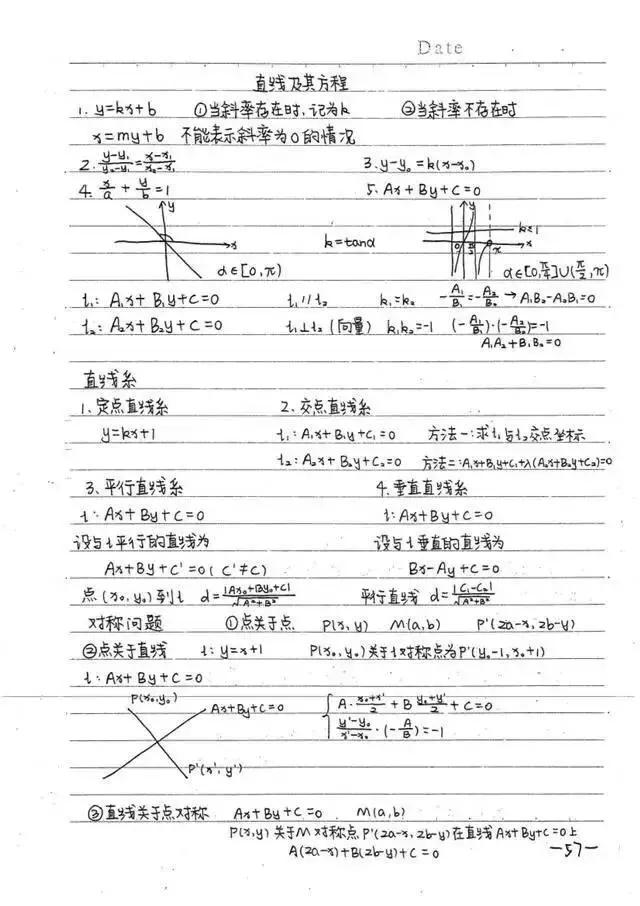 Date
直线及其方程
1. y=kx+b ①当斜率存在时,记为k ②当斜率不存在时
x=my+b 不能表示斜率为0的情况
2. (y-y₁)/(y₀-y₁)=(x-x₁)/(x₀-x₁) 3. y-y₀=k(x-x₀)
4. x/a + y/b =1 5. Ax+By+C=0
y y k=1
x k=tanα 0 π x
α∈[0,π) α∈[0,π/4]∪(π/2,π)
l₁: A₁x+B₁y+C=0 l₁//l₂ k₁=k₂ -A₁/B₁=-A₂/B₂ → A₁B₂-A₂B₁=0
l₂: A₂x+B₂y+C=0 l₁⊥l₂(向量) k₁k₂=-1 (-A₁/B₁)·(-A₂/B₂)=-1
A₁A₂+B₁B₂=0
直线系
1、定点直线系 2、交点直线系
y=kx+1 l₁: A₁x+B₁y+C₁=0 方法一:求l₁与l₂交点坐标
l₂: A₂x+B₂y+C₂=0 方法二:A₁x+B₁y+C₁+λ(A₂x+B₂y+C₂)=0
3、平行直线系 4、垂直直线系
l: Ax+By+C=0 l: Ax+By+C=0
设与l平行的直线为 设与l垂直的直线为
Ax+By+C'=0(C'≠C) Bx-Ay+C=0
点(x₀,y₀)到l d=|Ax₀+By₀+C|/√(A²+B²) 平行直线 d=|C₁-C₂|/√(A²+B²)
对称问题 ①点关于点 P(x,y) M(a,b) P'(2a-x,2b-y)
②点关于直线 l: y=x+1 P(x₀,y₀)关于l对称点为P'(y₀-1,x₀+1)
l: Ax+By+C=0
P(x₀,y₀) Ax+By+C=0 A·(x₀+x')/2+B(y₀+y')/2+C=0
P'(x',y') (y'-y₀)/(x'-x₀)·(-A/B)=-1
③直线关于点对称 Ax+By+C=0 M(a,b)
P(x,y)关于M对称点P'(2a-x,2b-y)在直线Ax+By+C=0上
A(2a-x)+B(2b-y)+C=0 -57-